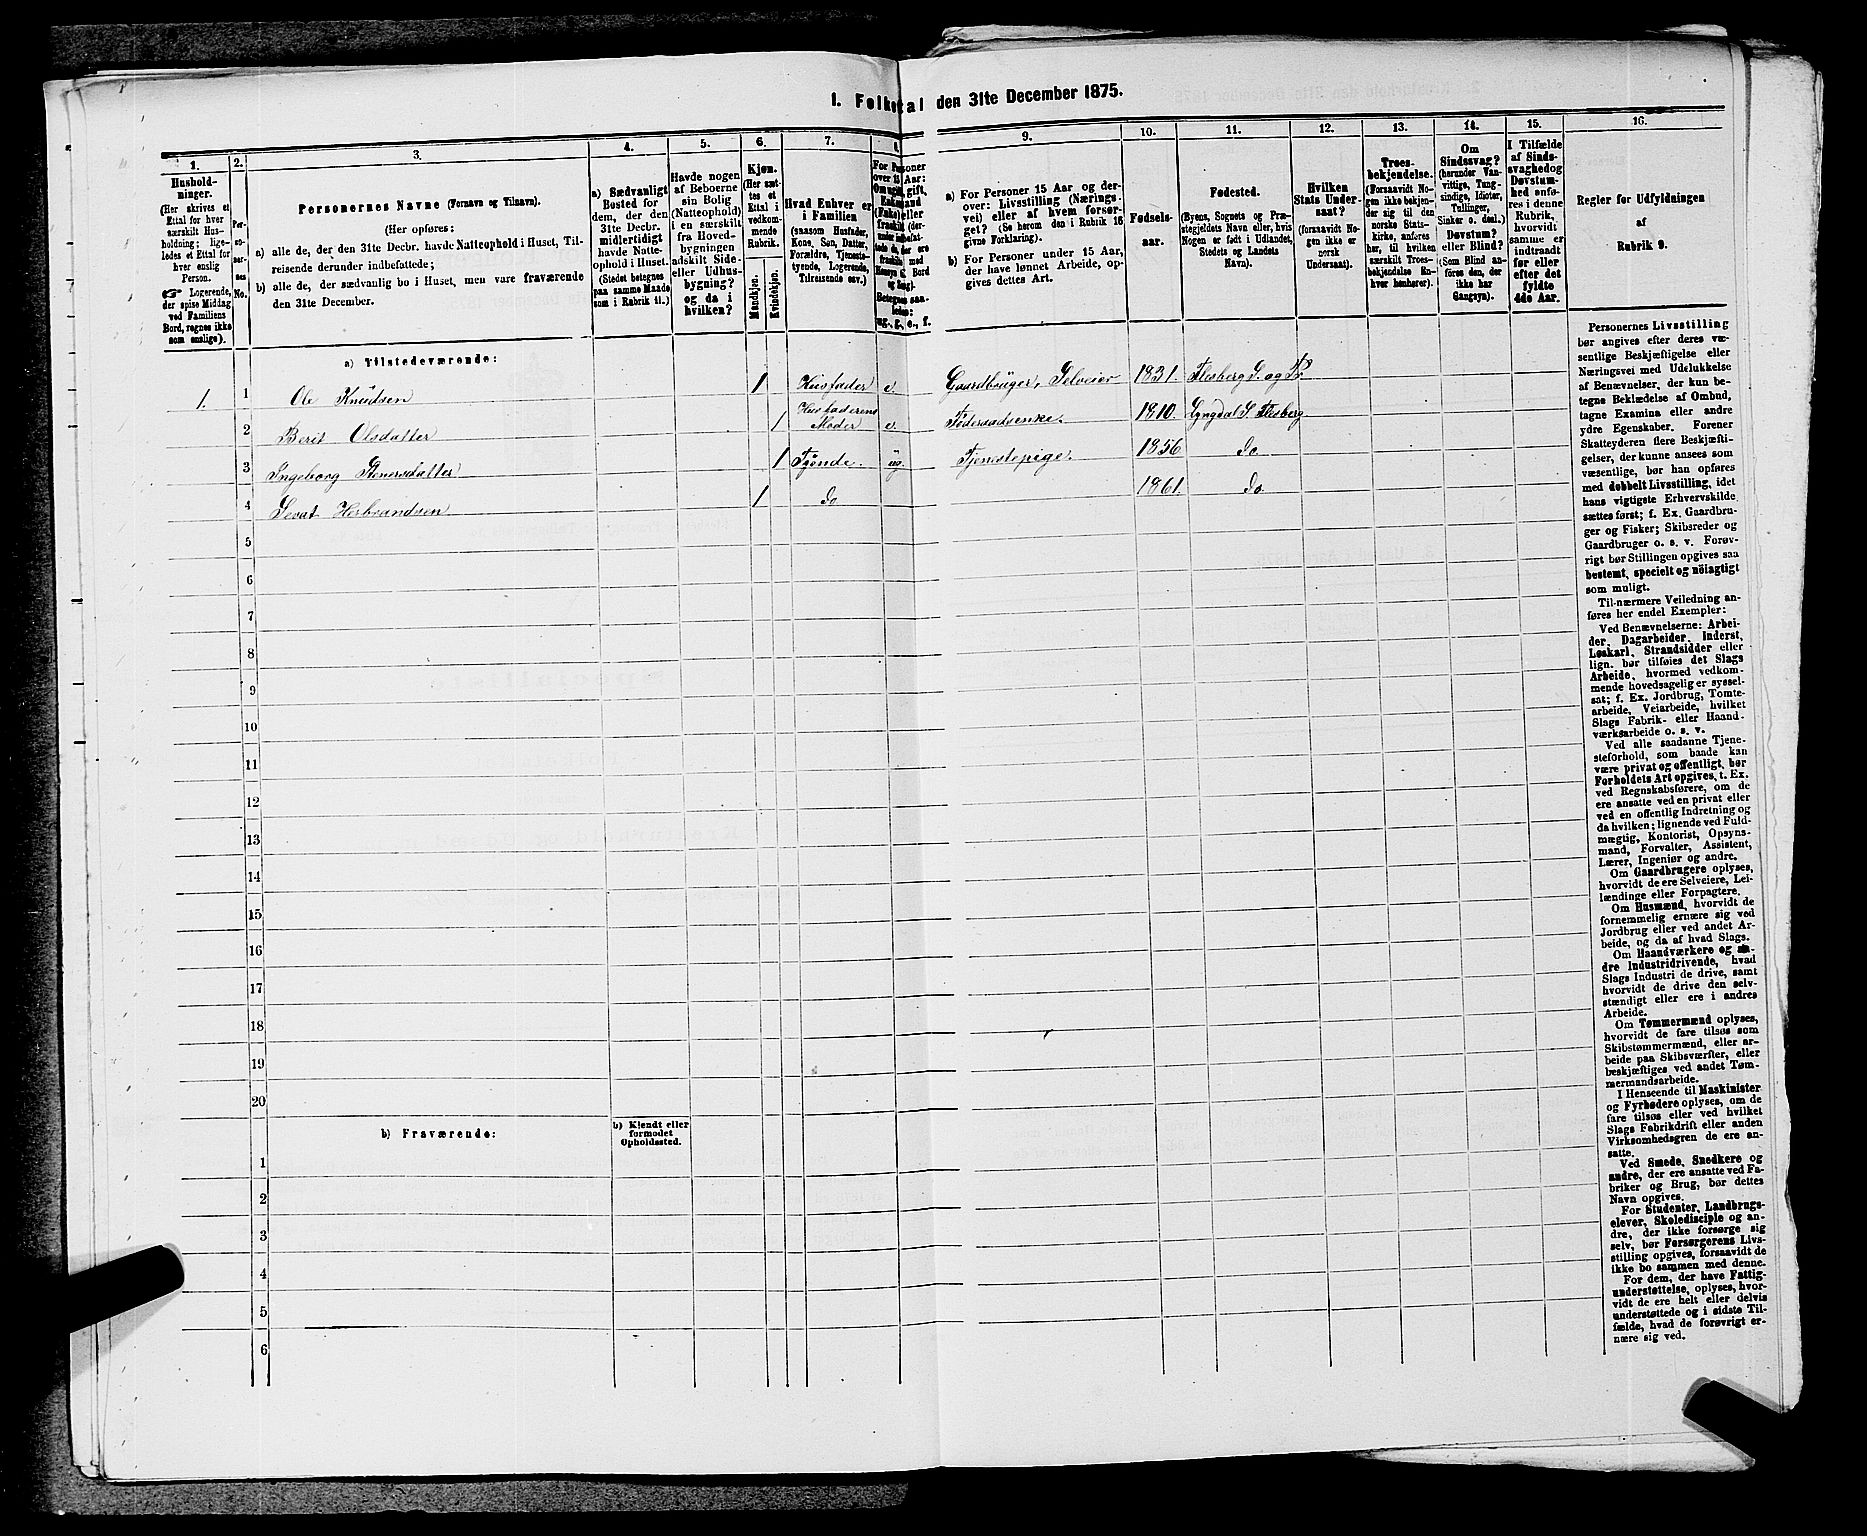 1. Folketal den 31te December 1875.
1. 2. 3. 4. 5. 6. 7. 8. 9. 10. 11. 12. 13. 14. 15. 16.
Husholdninger.
(Her skrives et
Ettal for hver
særskilt Husholdning;
ligeledes et Ettal for
hver enslig
Person.
Logerende,
der spise Middag
ved Familiens
Bord, regnes ikke
som enslige).
Personernes No.
Personernes Navne (Fornavn og Tilnavn).
(Her opføres:
a) alle de, der den 31te Decbr. havde Natteophold i Huset, Tilreisende derunder indbefattede;
b) alle de, der sædvanlig bo i Huset, men vare fraværende
den 31te December.
a) Sædvanligt
Bosted for
dem, der den
31te Decbr.
midlertidigt
havde Natteophold i Huset.
(Stedet betegnes
paa samme Maade
som i Rubrik 11.)
Havde nogen
af Beboerne
sin Bolig
(Natteophold)
i en særskilt
fra Hovedbygningen
adskilt Side-
eller Udhusbygning?
og da i
hvilken?
Kjøn.
(Her sættes et
Ettal i
vedkommende
Rubrik.
Mandkjøn. Kvindekjøn.
Hvad Enhver er
i Familien
(saasom Husfader,
Kone, Søn, Datter,
Forældre, Tjenestetyende, Logerende,
Tilreisende osv.)
ug., g., e., f.
a) For Personer 15 Aar og derover: Livsstilling (Næringsvei) eller af hvem forsørget? (Se herom den i Rubrik 16
givne Forklaring).
b) For Personer under 15 Aar,
der have lønnet Arbeide, opgives dettes Art.
Fødselsaar.
Fødested.
(Byens, Sognets og Præstegjeldets Navn eller, hvis
Nogen er født i Udlandet,
Stedets og Landets
Navn).
Hvilken
Stats Undersaat?
(forsaavidt Nogen ikke er
norsk
Undersaat).
Troesbekjendelse.
(Forsaavidt Nogen ikke bekjender sig til den
norske Statskirke, anføres
her, til hvilken
særskilt Troesbekjendelse Enhver henhører).
Om
Sindssvag?
(herunder Vanvittige, Tungsindige, Idioter,
Tullinger,
Sinker o. desl.)
Døvstum?
eller Blind?
(Som Blind anføres den, der
ikke har
Gangsyn).
I Tilfælde
af Sindssvaghed og
Døvstumhed anføres i denne
Rubrik,
hvorvidt
samme er
indtraadt
før eller
efter det
fyldte
4de Aar.
Regler for Udfyldningen
af
Rubrik 9.
a) Tilstedeværende:
1. 1 Ole Knudsen 1 Husfader e. Gaardbruger, Selveier 1831. Flesberg S. og Pr
2 Berit Olsdatter 1 Husfaderens Moder e. Føderaadsenke. 1810. Lyngdal S. Flesberg
3 Ingeborg Stenersdatter 1 Tyende. ug. Tjenestepige. 1856 do
4 Sevat Herbrandsen 1 do 1861. do
5
6
7
8
9
10
11
12
13
14
15
16
17
18
19
20
b) Fraværende: b) Kjendt eller
formodet
Opholdssted.
1
2
3
4
5
6
Personernes Livsstilling
bør angives efter deres væsentlige Beskjæftigelse eller
Næringsvei med Udelukkelse
af Benævnelser, der kun betegne Beklædelse af Ombud,
tagne Examina eller andre
ydre Egenskaber. Forener
Skatteyderen flere Beskjæftigelser, der kunne ansees som
væsentlige, bør han opføres
med dobbelt Livsstilling, idet
hans vigtigste Erhvervskilde
sættes først; f. Ex. Gaardbruger og Fisker; Skibsreder og
Gaardbruger o. s. v. Forøvrigt bør Stillingen opgives saa
bestemt, specielt og nöiagtigt
som muligt.
Til nærmere Veiledning anføres her endel Exempler:
Ved Benævnelserne: Arbeider, Dagarbeider, Inderst,
Løskarl, Strandsidder eller
lign. bør tilføies det Slags
Arbeide, hvormed vedkommende hovedsagelig er sysselsat; f. Ex. Jordbrug, Tomtearbeide, Veiarbeide, hvilket
Slags Fabrik- eller Haandværksarbeide o. s. v.
Ved alle saadanne Tjenesteforhold, som baade kan
være privat og offentligt, bør
Forholdets Art opgives, t. Ex.
ved Regnskabsførere, om de
ere ansatte ved en privat eller
ved en offentlig Indretning og
da hvilken; lignende ved Fuldmægtig, Kontorist, Opsynsmand, Forvalter, Assistent,
Lærer, Ingeniør og andre.
Om Gaardbrugere oplyses,
hvorvidt de ere Selveiere, Leilændinge eller Forpagtere.
Om Husmænd, hvorvidt de
fornemmelig ernære sig ved
Jordbrug eller ved andet Arbeide, og da af hvad Slags.
Om Haandværkere og andre Industridrivende, hvad
Slags Industri de drive, samt
hvorvidt de drive den selvstændigt eller ere i andres
Arbeide.
Om Tømmermænd oplyses,
hvorvidt de fare tilsøs som
Skibstømmermænd, eller arbeide paa Skibsværfter, eller
beskjæftiges ved andet Tømmermandsarbeide.
I Henseende til Maskinister
og Fyrbødere oplyses, om de
fare tilsøs eller ved hvilket
Slags Fabrikdrift eller anden
Virksomhedsgren de ere ansatte.
Ved Smede, Snedkere og
andre, der ere ansatte ved Fabriker og Brug, bør dettes
Navn opgives.
For Studenter, Landbrugselever, Skoledisciple og andre, der ikke forsørge sig
selv, bør Forsørgerens Livsstilling opgives, forsaavidt de
ikke bo sammen med denne.
For dem, der have Fattigunderstøttelse, oplyses, hvorvidt de ere helt eller delvis
understøttede og i sidste Tilfælde, hvad de forøvrigt ernære sig ved.